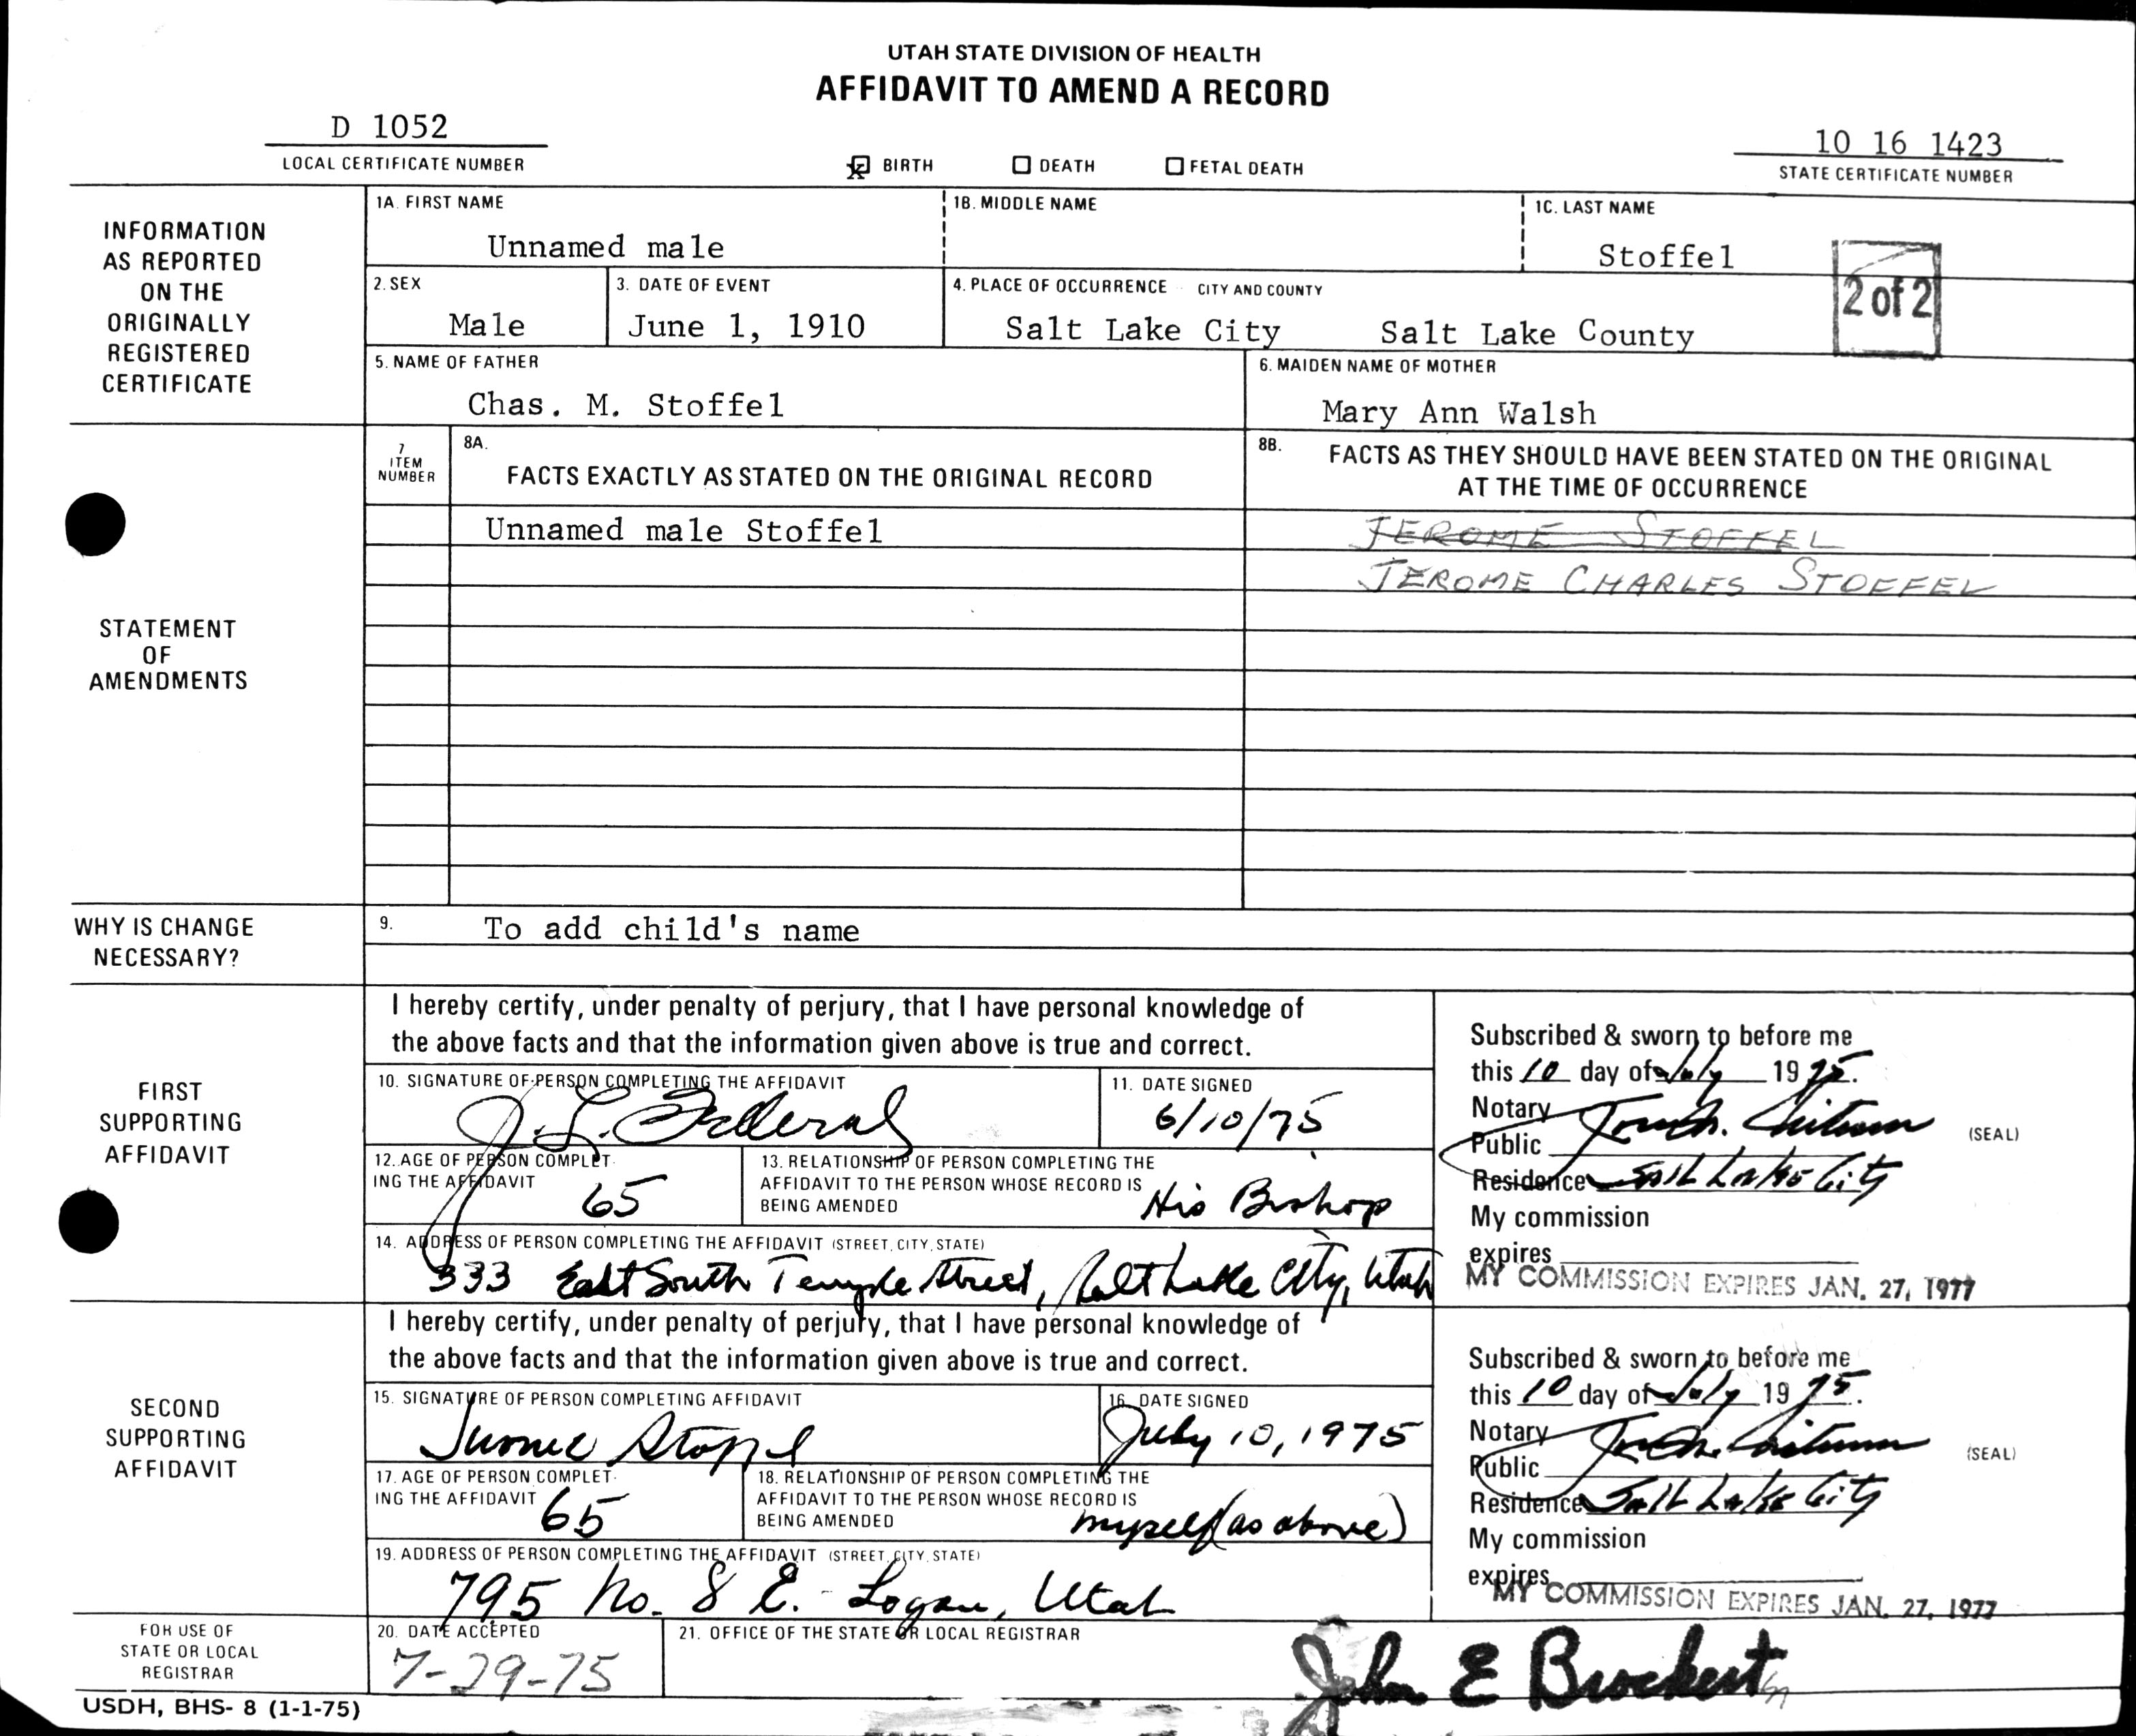 UTAH STATE DIVISION OF HEALTH
AFFIDAVIT TO AMEND A RECORD
D 1052
LOCAL CERTIFICATE NUMBER
x BIRTH DEATH FETAL DEATH
10 16 1423
STATE CERTIFICATE NUMBER
INFORMATION AS REPORTED ON THE ORIGINALLY REGISTERED CERTIFICATE
1A. FIRST NAME 1B. MIDDLE NAME 1C. LAST NAME
Unnamed male Stoffel
2 of 2
2. SEX 3. DATE OF EVENT 4. PLACE OF OCCURRENCE CITY AND COUNTY
Male June 1, 1910 Salt Lake City Salt Lake County
5. NAME OF FATHER 6. MAIDEN NAME OF MOTHER
Chas. M. Stoffel Mary Ann Walsh
STATEMENT OF AMENDMENTS
7 ITEM NUMBER
8A. FACTS EXACTLY AS STATED ON THE ORIGINAL RECORD
8B. FACTS AS THEY SHOULD HAVE BEEN STATED ON THE ORIGINAL
AT THE TIME OF OCCURRENCE
Unnamed male Stoffel JEROME STOFFEL
JEROME CHARLES STOFFEL
WHY IS CHANGE NECESSARY?
9. To add child's name
FIRST SUPPORTING AFFIDAVIT
I hereby certify, under penalty of perjury, that I have personal knowledge of
the above facts and that the information given above is true and correct.
10. SIGNATURE OF PERSON COMPLETING THE AFFIDAVIT 11. DATE SIGNED
J. L. Federal 6/10/75
12. AGE OF PERSON COMPLET-
ING THE AFFIDAVIT 65
13. RELATIONSHIP OF PERSON COMPLETING THE
AFFIDAVIT TO THE PERSON WHOSE RECORD IS
BEING AMENDED His Bishop
14. ADDRESS OF PERSON COMPLETING THE AFFIDAVIT (STREET, CITY, STATE)
333 East South Temple Street, Salt Lake City, Utah
Subscribed & sworn to before me
this 10 day of July 1975.
Notary
Public
(SEAL)
Residence Salt Lake City
My commission
expires
MY COMMISSION EXPIRES JAN. 27, 1977
SECOND SUPPORTING AFFIDAVIT
I hereby certify, under penalty of perjury, that I have personal knowledge of
the above facts and that the information given above is true and correct.
15. SIGNATURE OF PERSON COMPLETING AFFIDAVIT 16. DATE SIGNED
Jerome Stoffel July 10, 1975
17. AGE OF PERSON COMPLET-
ING THE AFFIDAVIT 65
18. RELATIONSHIP OF PERSON COMPLETING THE
AFFIDAVIT TO THE PERSON WHOSE RECORD IS
BEING AMENDED myself (as above)
19. ADDRESS OF PERSON COMPLETING THE AFFIDAVIT (STREET, CITY, STATE)
795 No. 8 E. - Logan, Utah
Subscribed & sworn to before me
this 10 day of July 1975.
Notary
Public
(SEAL)
Residence Salt Lake City
My commission
expires
MY COMMISSION EXPIRES JAN. 27, 1977
FOR USE OF STATE OR LOCAL REGISTRAR
20. DATE ACCEPTED 21. OFFICE OF THE STATE OR LOCAL REGISTRAR
7-29-75 John E Brockert
USDH, BHS- 8 (1-1-75)